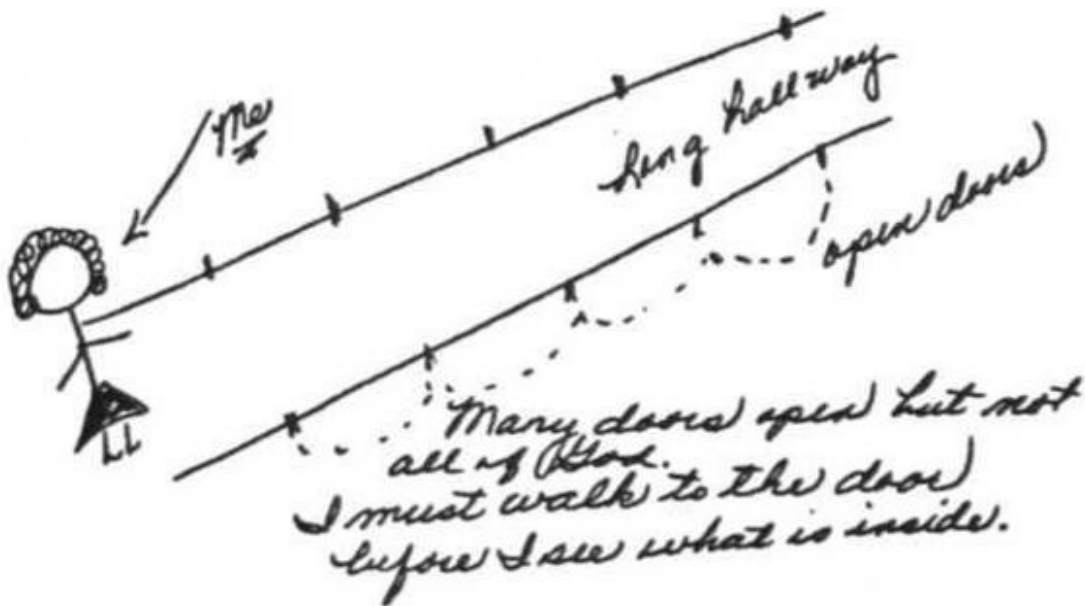 me
long hallway
open doors
Many doors open but not
all of God.
I must walk to the door
before I see what is inside.